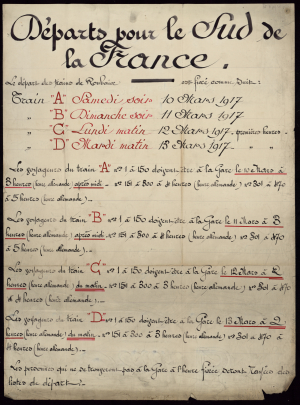 Départs pour le Sud de
la France.
Le départ des trains de Roubaix est fixé comme suit:
Train "A" Samedi soir 10 Mars 1917
" "B" Dimanche soir 11 Mars 1917
" "C" Lundi matin 12 Mars 1917 premières heures
" "D" Mardi matin 13 Mars 1917
Les voyageurs du train "A" nos 1 à 150 doivent être à la Gare le 10 Mars à
3 heures (heure allemande) après midi nos 151 à 300 à heures (heure allemande) nos 301 à
à 5 heures (heure allemande).
Les voyageurs du train "B" nos 1 à 150 doivent être à la Gare le 11 Mars à 3
heures (heure allemande) après midi nos 151 à 300 à heures (heure allemande) nos 301 à
à 5 heures (heure allemande).
Les voyageurs du train "C" nos 1 à 150 doivent être à la Gare le 12 Mars à 2
heures (heure allemande) du matin nos 151 à 300 à 3 heures (heure allemande) nos 301 à
à 4 heures (heure allemande).
Les voyageurs du train "D" nos 1 à 150 doivent être à la Gare le 13 Mars à 2
heures (heure allemande) du matin nos 151 à 300 à 3 heures (heure allemande) nos 301 à
à 4 heures (heure allemande).
Les personnes qui ne se trouveront pas à la Gare à l'heure fixée seront rayées des
listes du départ.